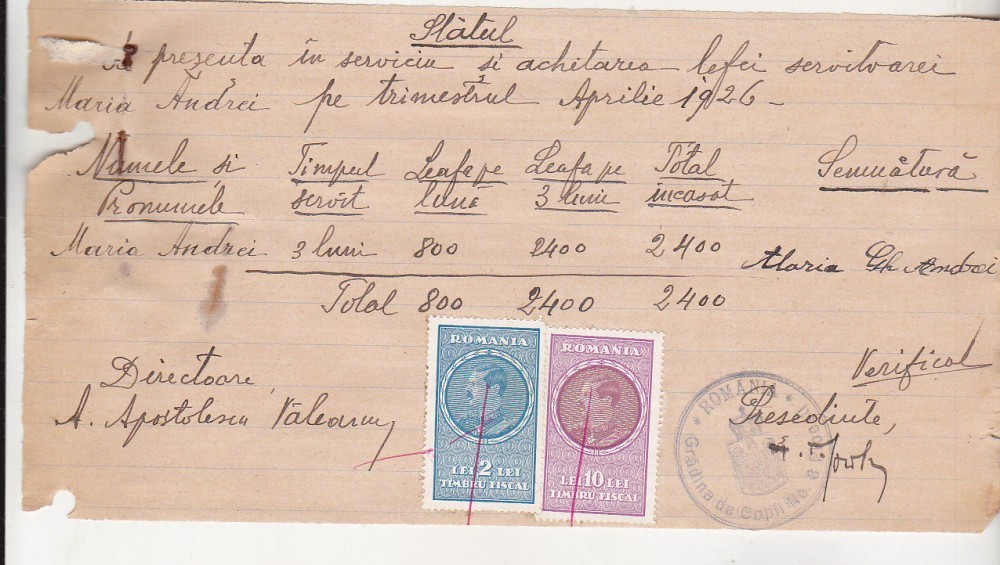 Statul
de prezența în serviciu și achitarea lefei servitoarei
Maria Andrei pe trimestrul Aprilie 1926 -
Numele și Pronumele Timpul servit Leafa pe lună Leafa pe 3 luni Total incasat Semnătură
Maria Andrei 3 luni 800 2400 2400 Maria Gh Andrei
Total 800 2400 2400
Directoare,
A. Apostolescu Văleanu
Verificat
Președinte,
ROMANIA
LEI 2 LEI
TIMBRU FISCAL
ROMANIA
LEI 10 LEI
TIMBRU FISCAL
ROMANIA
Grădina de Copii No. 8